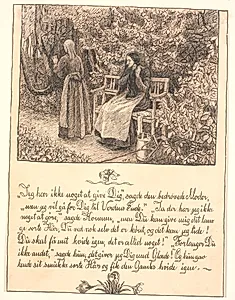 "Jeg har ikke noget at give Dig", sagde den bedrøvede Moder,
"men jeg vil gå for Dig til Verdens Ende". "Ja der har jeg ikke
noget at gøre", sagde Konen, "men Du kan give mig dit lange
sorte Hår, Du ved nok selv det er kønt, og det kan jeg lide!
Du skal få mit hvide igen, det er altid noget!" "Forlanger Du
ikke andet", sagde hun, "det giver jeg Dig med Glæde! Og hun gav
hende sit smukke sorte Hår og fik den Gamles hvide igen.